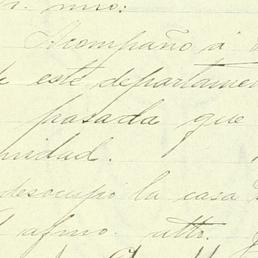 mio:
Acompaño á
este departamen
pasada que
nidad.
desocupó la casa
afmo. atto.